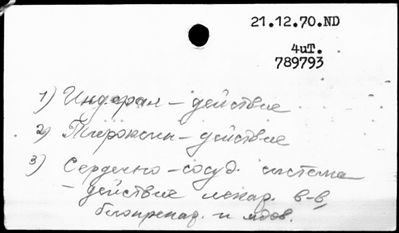 21.12.70.ND
4uT.
789793
1) Индерал – действие
2) Тироксин – действие
3) Сердечно – сосуд. система
– действие лекар. в-в,
биопрепар. и ядов.